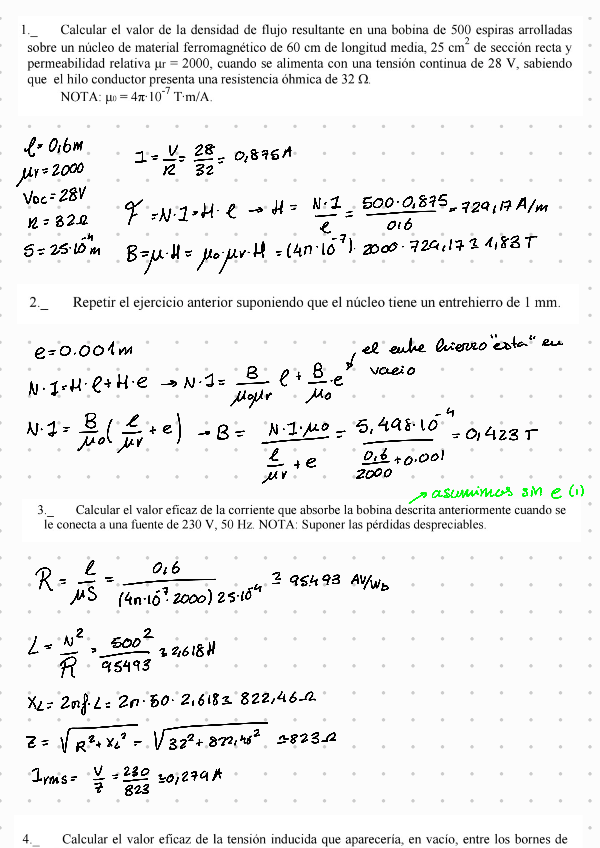 1._ Calcular el valor de la densidad de flujo resultante en una bobina de 500 espiras arrolladas
sobre un núcleo de material ferromagnético de 60 cm de longitud media, 25 cm² de sección recta y
permeabilidad relativa μr = 2000, cuando se alimenta con una tensión continua de 28 V, sabiendo
que el hilo conductor presenta una resistencia óhmica de 32 Ω.
NOTA: μ₀ = 4π·10⁻⁷ T·m/A.
ℓ = 0,6m
μr = 2000
VDC = 28V
R = 32Ω
S = 25·10⁻⁴ m
I = V/R = 28/32 = 0,875 A
F = N·I = H·ℓ → H = N·I/ℓ = 500·0,875/0,6 = 729,17 A/m
B = μ·H = μ₀·μr·H = (4π·10⁻⁷)·2000·729,17 ≅ 1,83 T
2._ Repetir el ejercicio anterior suponiendo que el núcleo tiene un entrehierro de 1 mm.
e = 0.001m
el entre hierro "esta" en
vacio
N·I = H·ℓ + H·e → N·I = B/μ₀μr ℓ + B/μ₀·e
N·I = B/μ₀ (ℓ/μr + e) → B = N·I·μ₀/(ℓ/μr + e) = 5,498·10⁻⁴/(0,6/2000 + 0.001) = 0,423 T
→ asumimos sin e (1)
3._ Calcular el valor eficaz de la corriente que absorbe la bobina descrita anteriormente cuando se
le conecta a una fuente de 230 V, 50 Hz. NOTA: Suponer las pérdidas despreciables.
R = ℓ/μS = 0,6/(4π·10⁻⁷·2000) 25·10⁻⁴ ≅ 95493 AV/Wb
L = N²/R = 500²/95493 ≅ 2,618 H
XL = 2πf·L = 2π·50·2,618 ≅ 822,46 Ω
Z = √R² + XL² = √32² + 822,46² ≅ 823 Ω
Irms = V/Z = 230/823 ≅ 0,279 A
4._ Calcular el valor eficaz de la tensión inducida que aparecería, en vacío, entre los bornes de